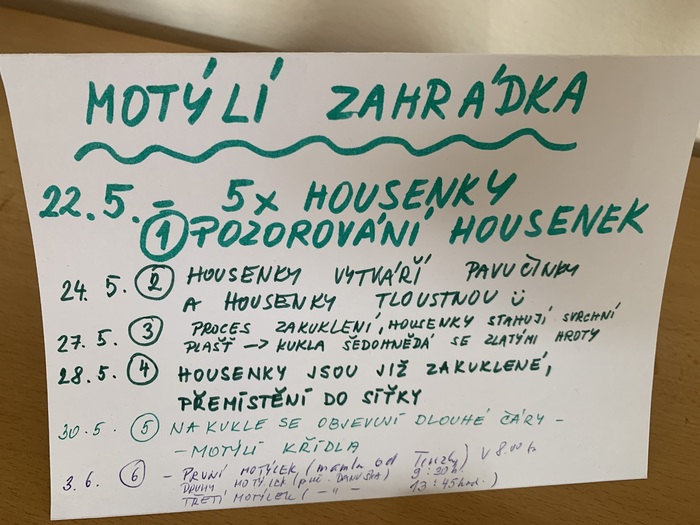 MOTÝLÍ ZAHRÁDKA
22.5. – 5x HOUSENKY
① POZOROVÁNÍ HOUSENEK
24. 5. ② HOUSENKY VYTVÁŘÍ PAVUČINKY
A HOUSENKY TLOUSTNOU Ü
27. 5. ③ PROCES ZAKUKLENÍ, HOUSENKY STAHUJÍ SVRCHNÍ
PLÁŠŤ –> KUKLA ŠEDOHNĚDÁ SE ZLATÝMI HROTY
28.5. ④ HOUSENKY JSOU JIŽ ZAKUKLENÉ,
PŘEMÍSTĚNÍ DO SÍŤKY
30.5. ⑤ NA KUKLE SE OBJEVUJÍ DLOUHÉ ČÁRY –
– MOTÝLÍ KŘÍDLA
3.6. ⑥ – PRVNÍ MOTÝLEK, (mamka od Terezky) V 8.00 h
DRUHÝ MOTÝLEK (DANUŠKA) 9:30 h.
TŘETÍ MOTÝLEK ( – " – 13:45 hod.)